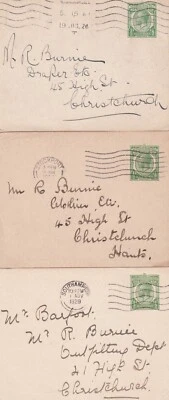 Mr R Burnie
Draper Etc
45 High St.
Christchurch
Mr R Burnie
Clothier Etc.
45 High St
Christchurch
Hants.
SOUTHAMPTON
1928
Mr Barfoot.
Mr R. Burnie
Outfitting Dept
41 High St
Christchurch.